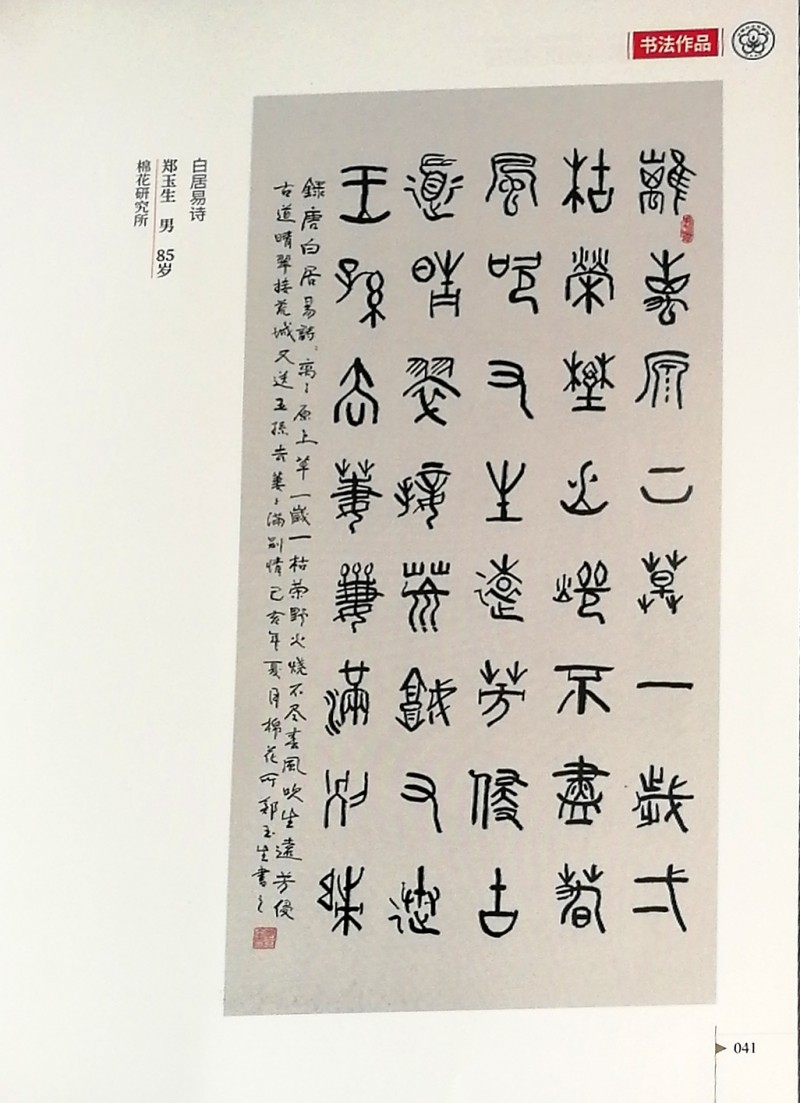 书法作品
離离原上草一歲弌
枯榮埜火燒不盡春
風吹又生遠芳侵古
道晴翠接荒城又送
王孫去萋萋滿別情
錄唐白居易詩：离〻原上草一歲一枯荣野火烧不尽春風吹生遠芳侵
古道晴翠接荒城又送王孫去萋〻滿别情己亥年夏月棉花所郑玉生書之
白居易诗
郑玉生 男 85岁
棉花研究所
041